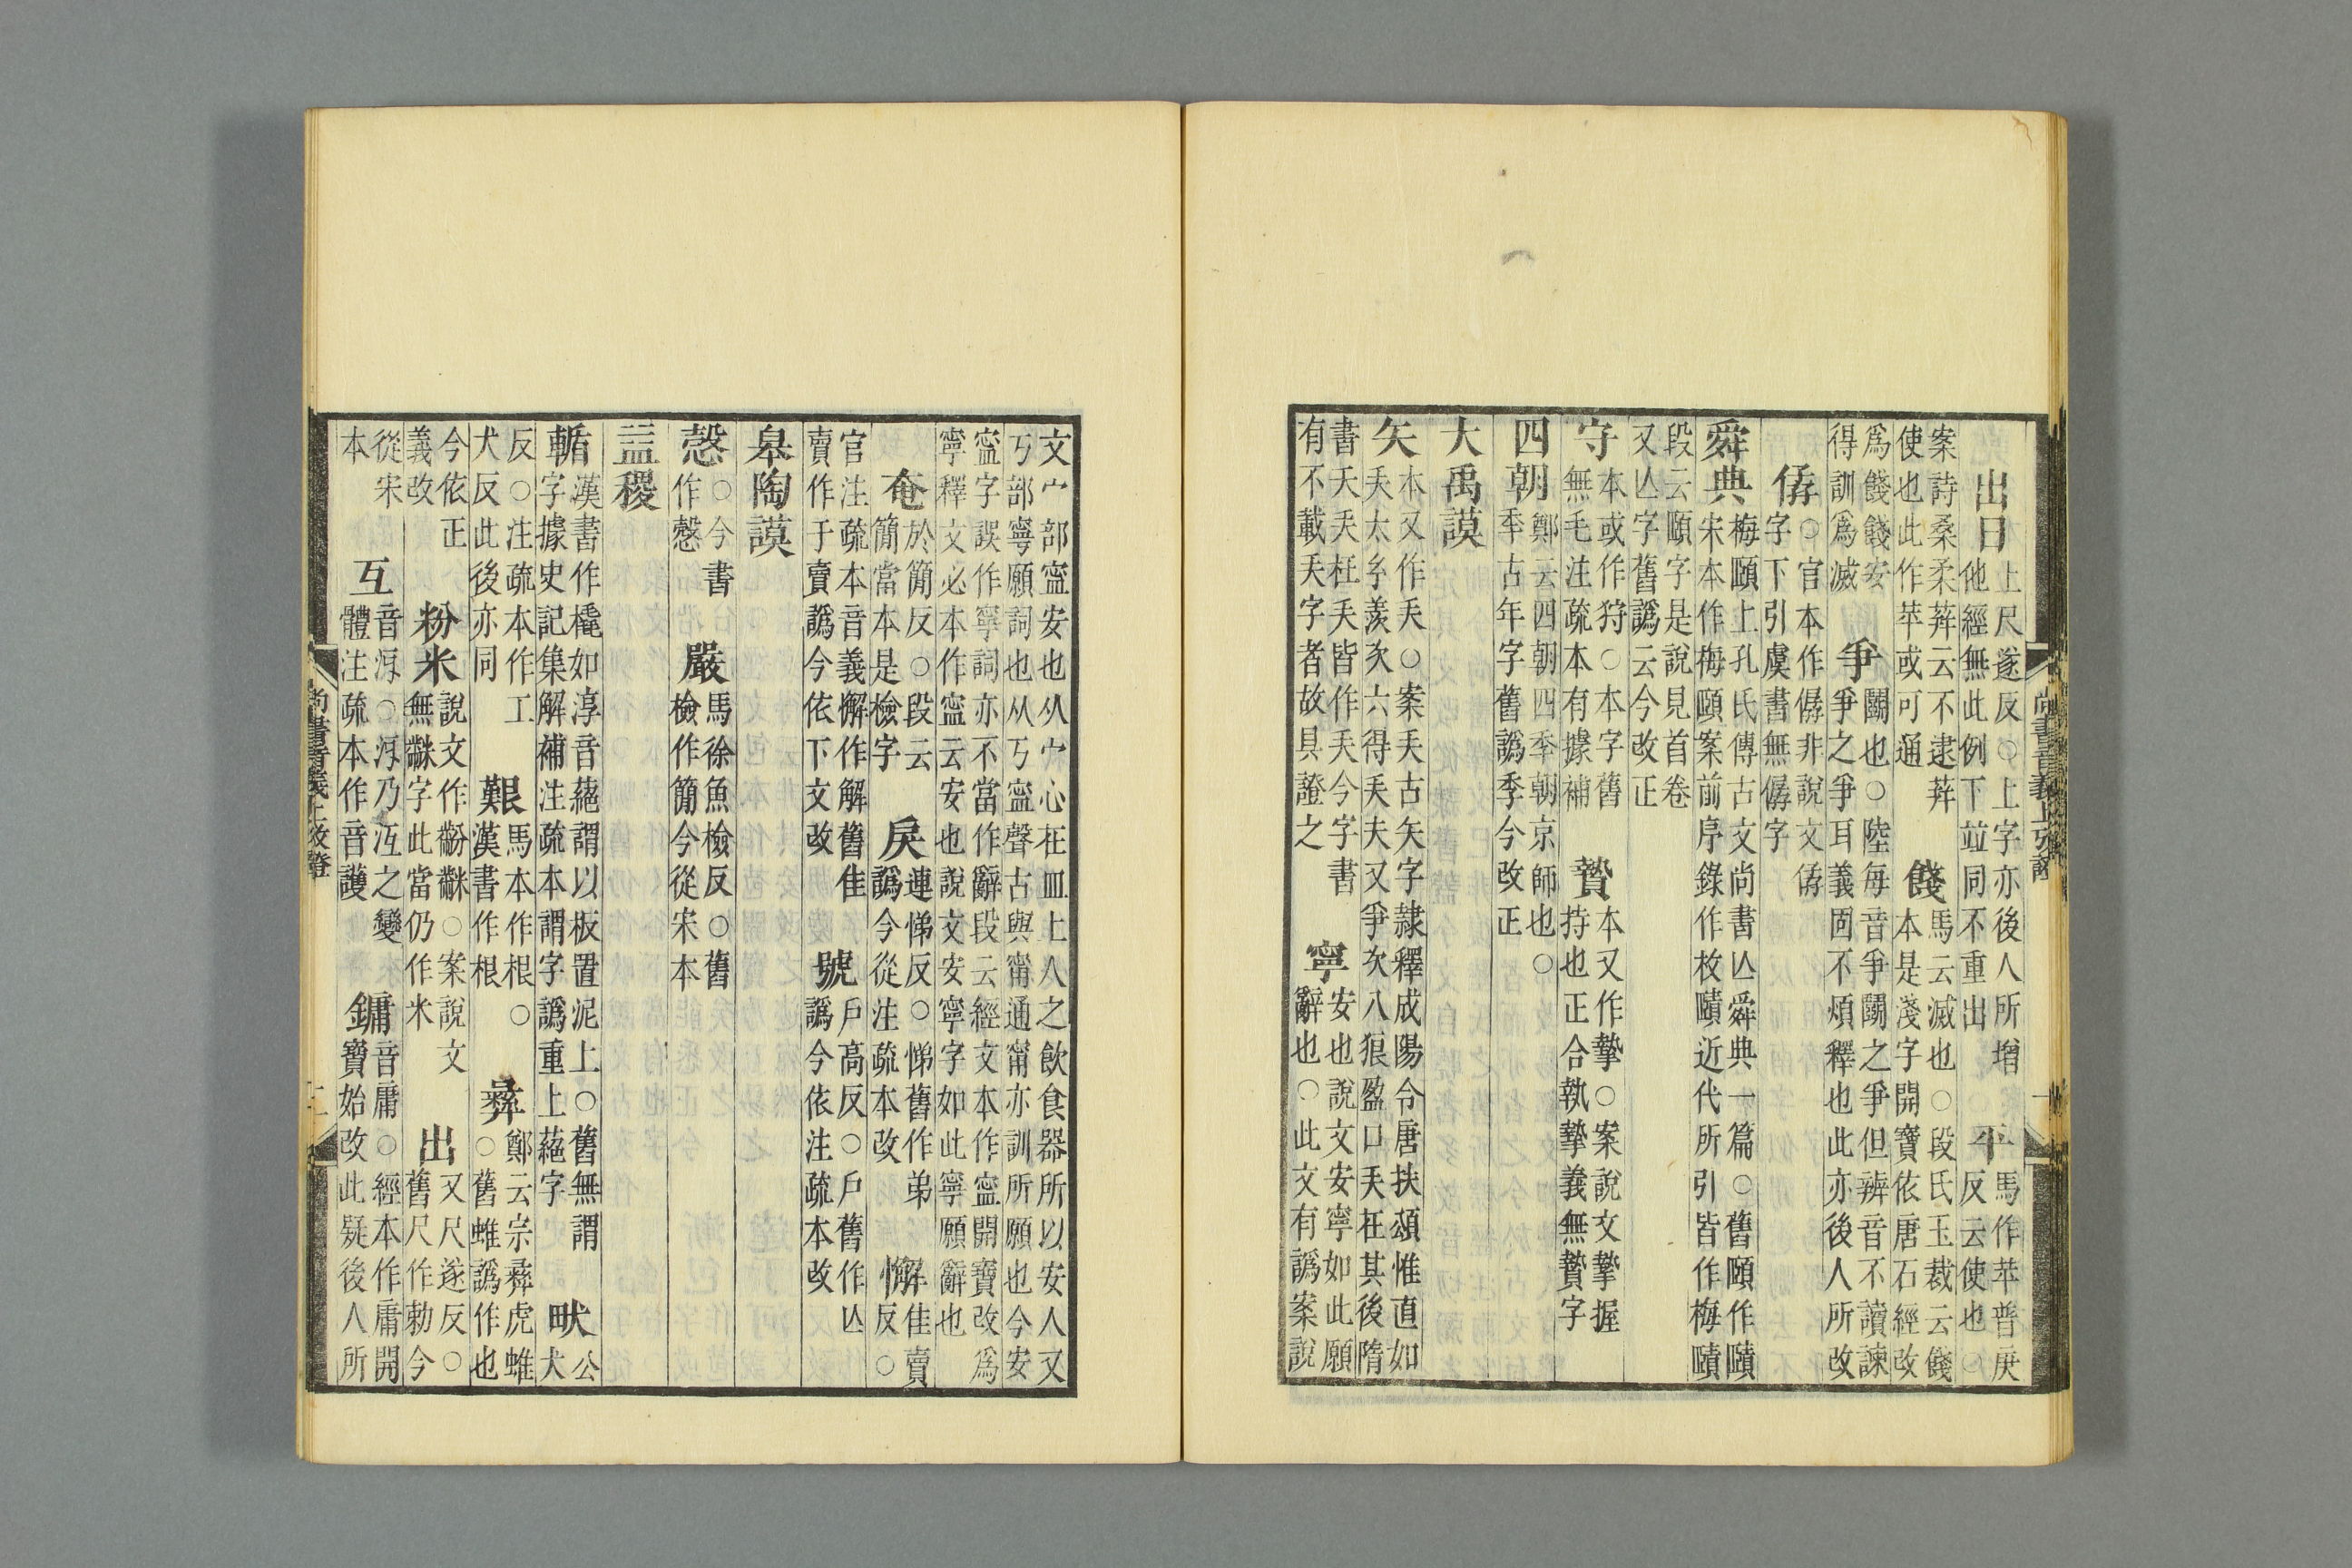 出日上尺遂反○上字亦後人所增他經無此例下竝同不重出 平馬作苹普庚反云使也○
案詩桑柔荓云不逮荓使也此作苹或可通 餞馬云滅也○段氏玉裁云餞本是淺字開寶依唐石經改
爲餞餞安得訓爲滅 爭鬭也○陸每音爭鬭之爭但辨音不讀諫爭之爭耳義固不煩釋也此亦後人所改
○官本作僝非說文字下引虞書無僝字
舜典梅頤上孔氏傳古文尚書亾舜典一篇○舊頤作賾宋本作梅頤案前序錄作枚賾近代所引皆作梅賾
段云頤字是說見首卷又亾字舊譌云今改正
守本或作狩○本字舊無毛注疏本有據補 贄本又作摯○案說文摯握持也正合執摯義無贄字
四朝鄭云四朝四季朝京師也○秊古年字舊譌季今改正
大禹謨
矢本又作夨○案夨古矢字隸釋成陽令唐扶頌惟直如夨太羡次六得夨夫又爭次八狼盈口夨在其後隋
書夭夨枉夨皆作夨今字書有不載夨字者故具證之 寧安也說文安寧如此願辭也○此文有譌案說
尚書音義上攷證
文宀部寍安也从宀心在皿上人之飲食器所以安人又丂部寧願詞也从丂寍聲古與甯通甯亦訓所願也今安
寍字誤作寧詞亦不當作辭段云經文本作寍開寶改爲寧釋文必本作寍云安也說文安寧字如此寧願辭也
奄於簡反○段云簡當本是檢字 戾連悌反○悌舊作弟譌今從注疏本改 懈佳賣反○
官注疏本音義懈作解舊佳賣作于賣譌今依下文改 號戶高反○戶舊作亾譌今依注疏本改
皋陶謨
愨○今書作慤 嚴馬徐魚檢反○舊檢作簡今從宋本
益稷
輴漢書作橇如淳音蕝謂以板置泥上○舊無謂字據史記集解補注疏本謂字譌重上蕝字 畎公犬
反○注疏本作工犬反此後亦同 艱馬本作根○漢書作根 彝鄭云宗彝虎蜼○舊蜼譌作也
今依正義改 粉米說文作黺䋛○案說文無䋛字此當仍作米 出又尺遂反○舊尺作勅今
從宋本 互音冱○冱乃沍之變體注疏本作音護 鏞音庸○經本作庸開寶始改此疑後人所
尚書音義上攷證 二